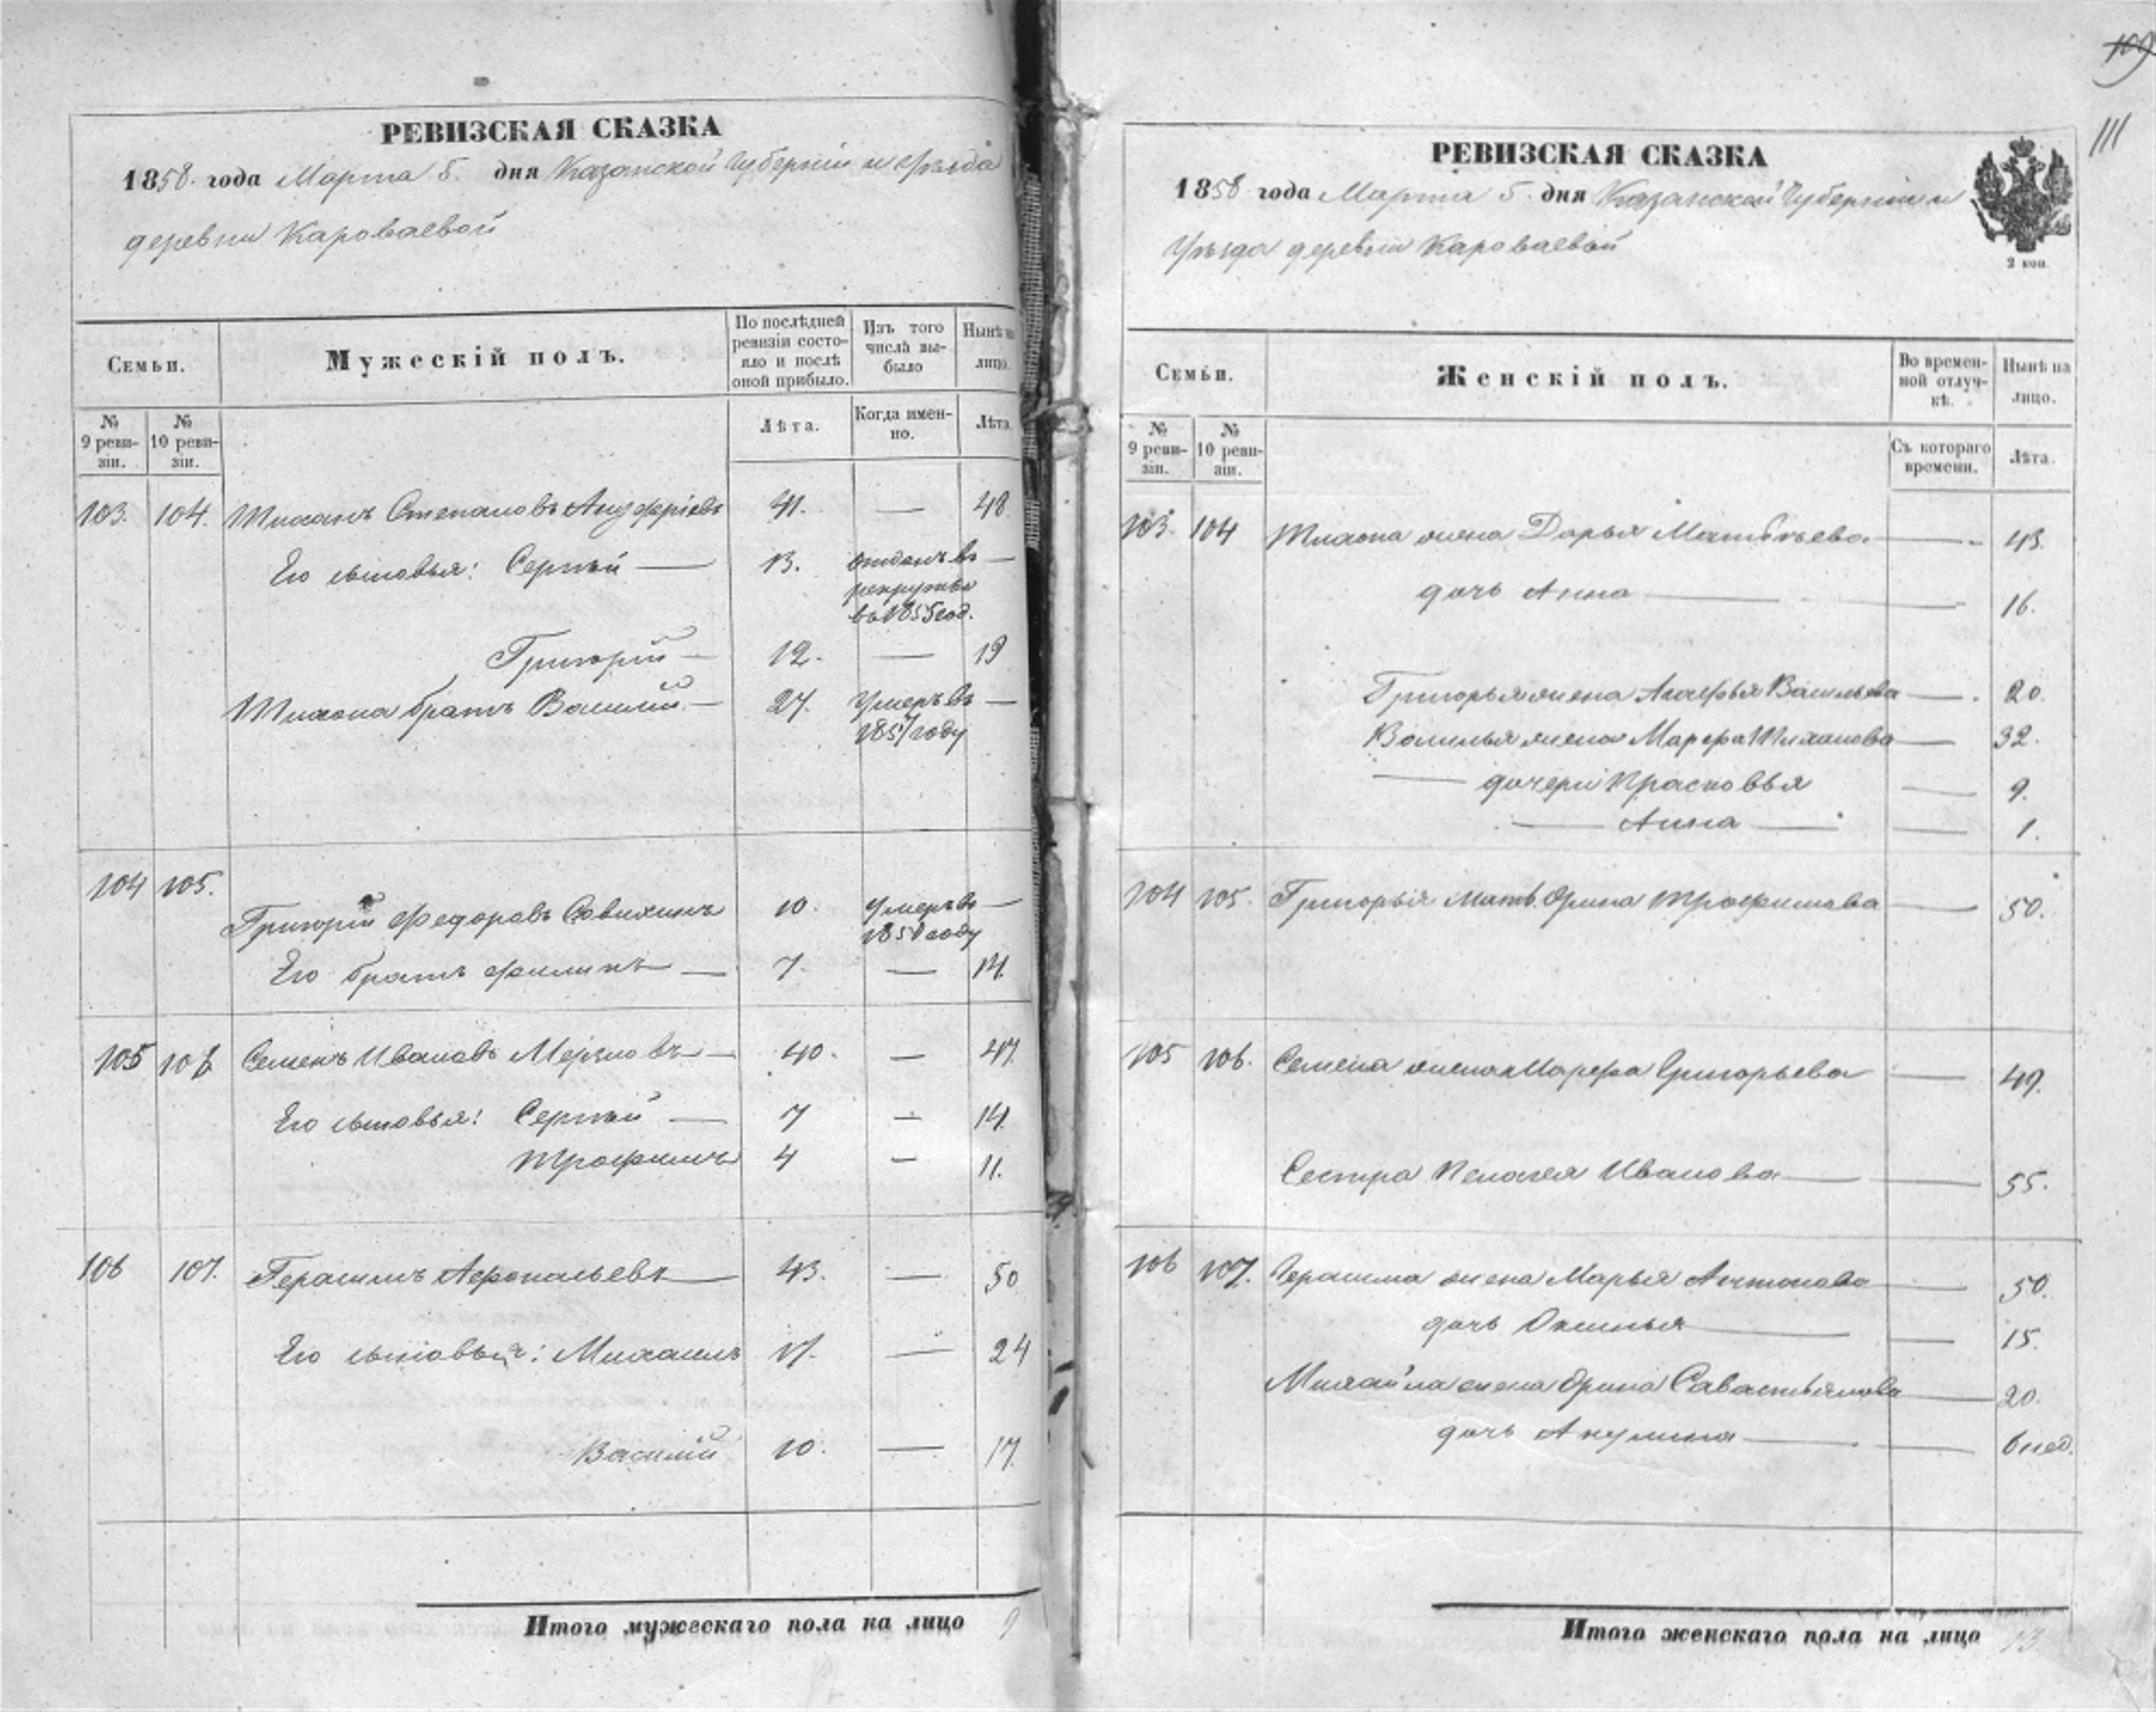 РЕВИЗСКАЯ СКАЗКА
1858 года Марта 5. дня Казанской Губерніи и Уѣзда
деревни Кароваевой
Семьи.
Мужескій полъ.
По послѣдней ревизіи состояло и послѣ оной прибыло.
Изъ того числа выбыло
Нынѣ на лицо.
№ 9 ревизіи.
№ 10 ревизіи.
Лѣта.
Когда именно.
Лѣта.
103. 104. Тихонъ Степановъ 41. — 48.
Его сыновья: Сергѣй — 13. отданъ въ —
рекруты
въ 1855 год.
Григорій — 12. — 19
Тихона братъ Василий — 27. Умеръ въ —
1857 году
104 105.
Григорій Федоровъ 10. Умеръ въ —
1850 году
Его братъ Филипъ — 7. — 14.
105 106 Семенъ Ивановъ — 40. — 47.
Его сыновья: Сергѣй — 7 — 14.
Трофимъ 4 — 11.
106 107. Герасимъ Афонасьевъ — 43. — 50
Его сыновья: Михаилъ 17. — 24
Василий 10. — 17.
Итого мужескаго пола на лицо 9
109
111
РЕВИЗСКАЯ СКАЗКА
1858 года Марта 5. дня Казанской Губерніи и
Уѣзда деревни Кароваевой
2 коп.
Семьи.
Женскій полъ.
Во временной отлучкѣ.
Нынѣ на лицо.
№ 9 ревизіи.
№ 10 ревизіи.
Съ котораго времени.
Лѣта.
103. 104 Тихона жена Дарья Матвѣева — 43.
дочь Анна — 16.
Григорья жена Агафья Васильева — 20.
Василья жена Марфа Тихонова — 32.
— дочери Прасковья — 9.
— Анна — 1.
104 105. Григорья мать Орина Трофимова — 50.
105 106. Семена жена Марфа Григорьева — 49.
Сестра Пелагея Иванова — 55.
106 107. Герасима жена Марья Антонова — 50.
дочь Оксинья — 15.
Михайла жена Орина Савастьянова — 20.
дочь Акулина — 6 нед.
Итого женскаго пола на лицо 13